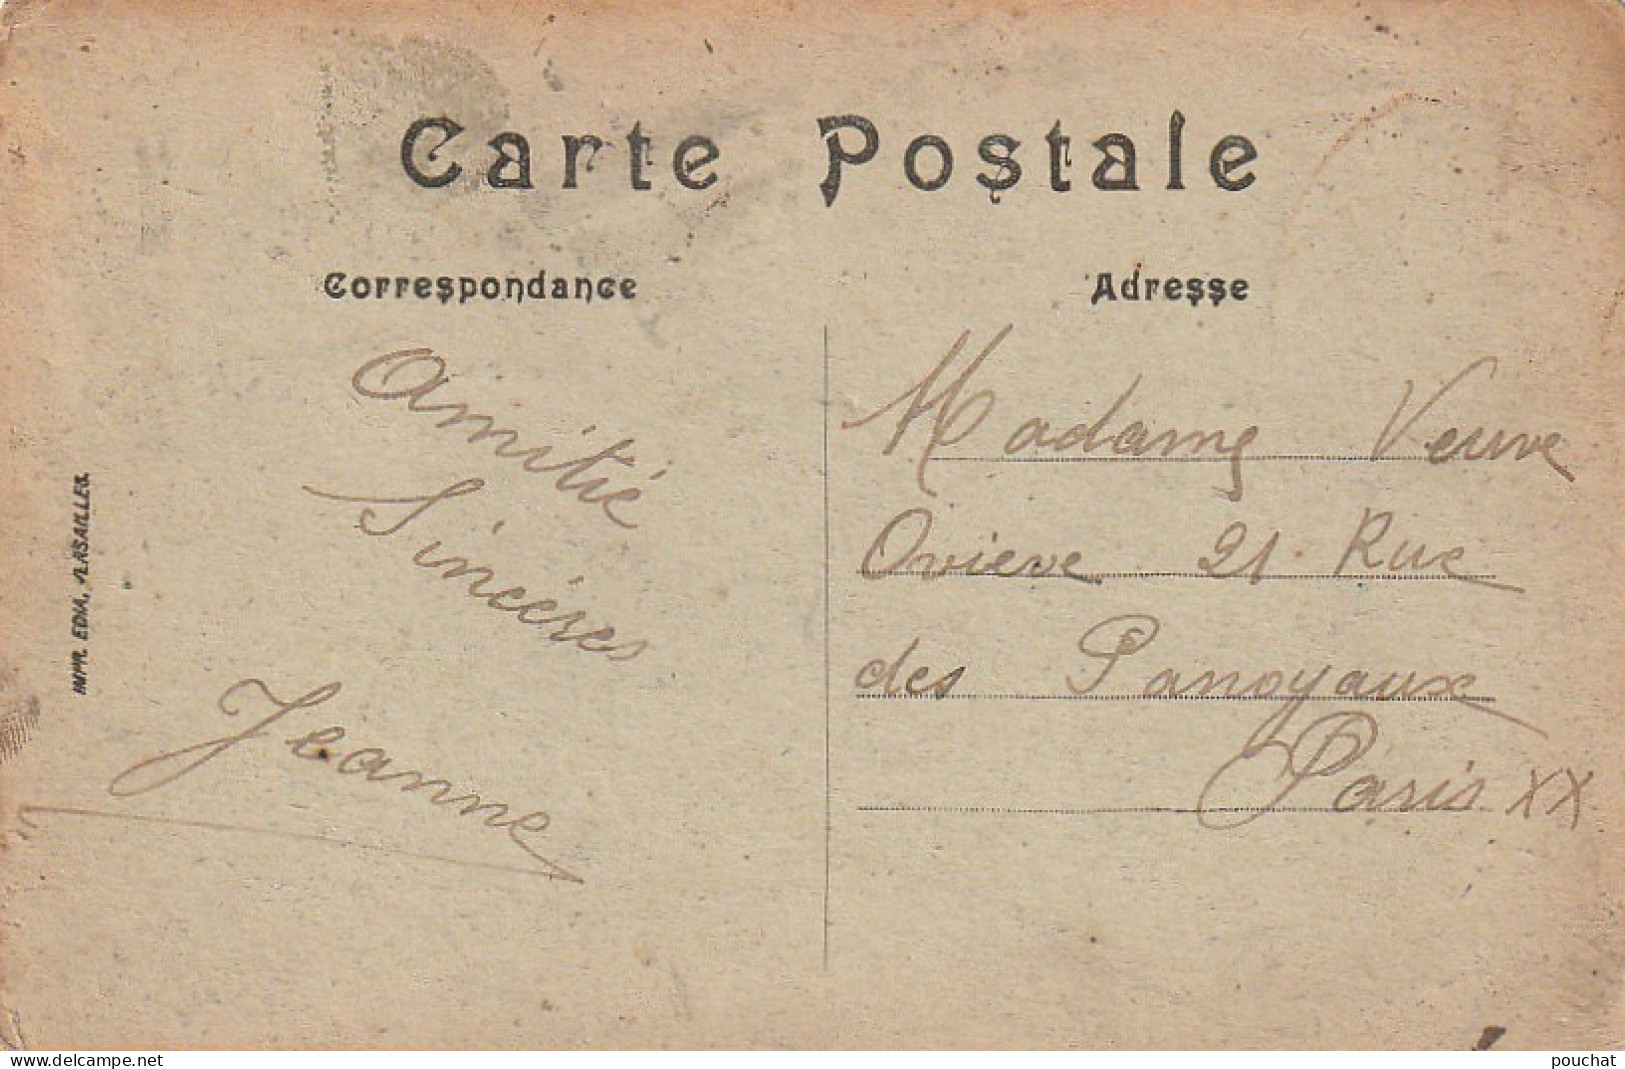 Carte Postale
Correspondance
Adresse
Amitié
Sincères
Jeanne
Madame Veuve
Oviève 21 Rue
des Panoyaux
Paris XX
IMPR. EDIA, VERSAILLES.
delcampe.net
pouchat